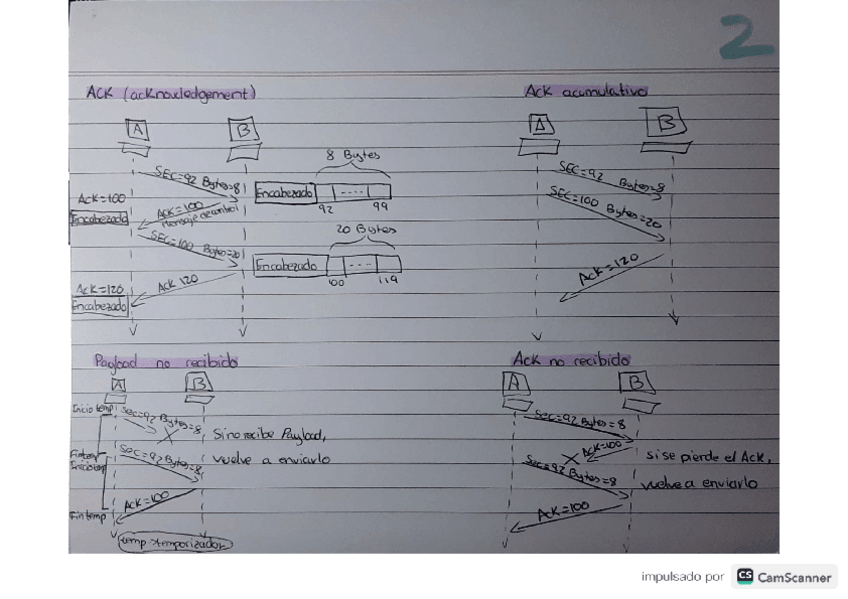 2
ACK (acknowledgement)
A
B
SEC=92 Bytes=8
Ack=100
Encabezado
Ack=100
Mensaje de control
SEC=100 Bytes=20
Ack 120
Ack=120
Encabezado
8 Bytes
Encabezado
....
92
99
20 Bytes
Encabezado
...
100
119
Ack acumulativo
A
B
SEC=92 Bytes=8
SEC=100 Bytes=20
Ack=120
Payload no recibido
A
B
Inicio temp
Sec=92 Bytes=8
Sec=92 Bytes=8
Ack=100
Fin temp
Si no recibe Payload,
vuelve a enviarlo
temp→temporizador
Ack no recibido
A
B
Sec=92 Bytes=8
Ack=100
Sec=92 Bytes=8
Ack=100
si se pierde el Ack,
vuelve a enviarlo
impulsado por CS CamScanner